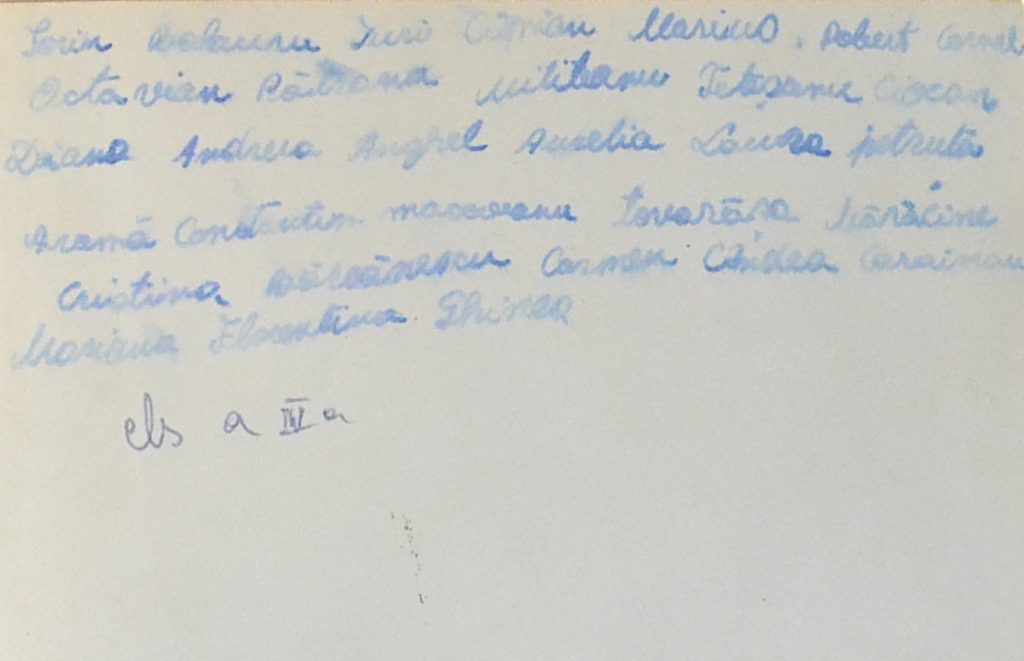 Sorin Balauru Ciprian Marius, Robert Cornel
Octavian Păltrana Mitileanu Teteșanu Ciocan
Diana Andreea Anghel Aurelia Laura petruta
Aramă Constantin macoveanu tovarăsa Mărăcine
Cristina Carmen Cândea Caraiman
Mariana Florentina Ghinea
cls a IV a